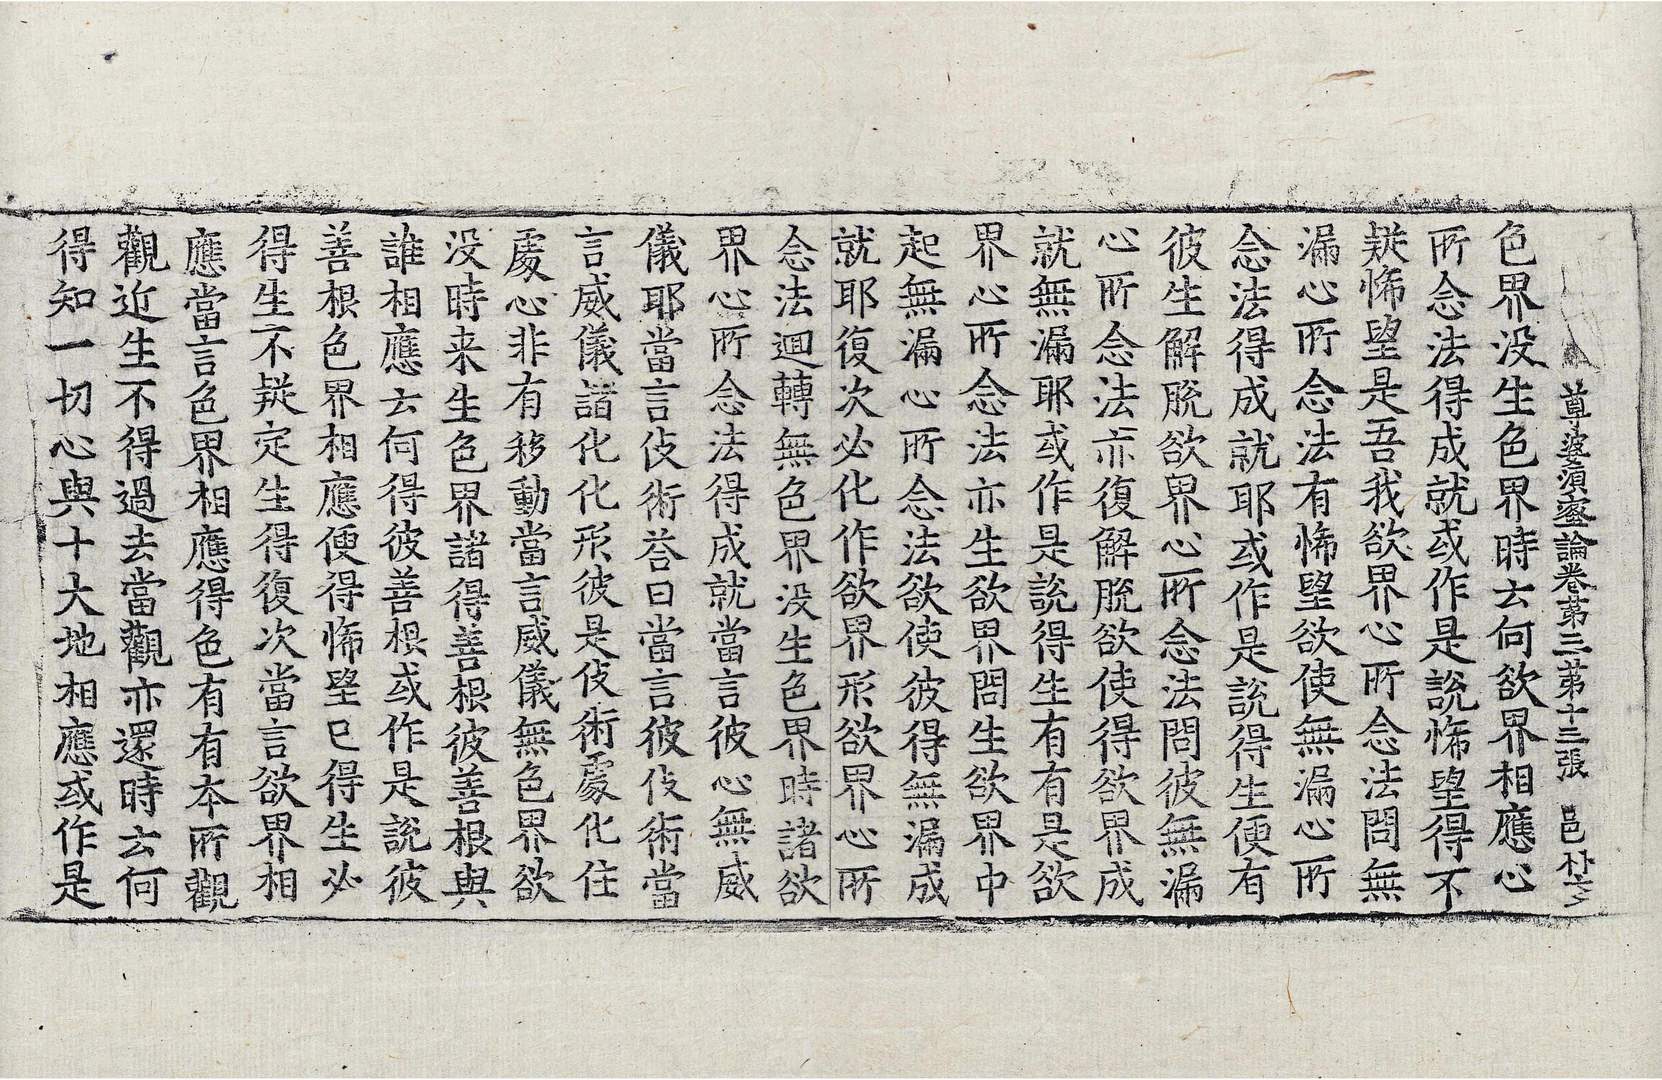 尊婆須蜜論卷第三第十三張 邑
色界没生色界時云何欲界相應心
所念法得成就或作是說悕望得不
疑悕望是吾我欲界心所念法問無
漏心所念法有悕望欲使無漏心所
念法得成就耶或作是說得生便有
彼生解脫欲界心所念法問彼無漏
心所念法亦復解脫欲使得欲界成
就無漏耶或作是說得生有有是欲
界心所念法亦生欲界問生欲界中
起無漏心所念法欲使彼得無漏成
就耶復次必化作欲界形欲界心所
念法迴轉無色界没生色界時諸欲
界心所念法得成就當言彼心無威
儀耶當言伎術荅曰當言彼伎術當
言威儀諸化化形彼是伎術處化住
處心非有移動當言威儀無色界欲
没時来生色界諸得善根彼善根與
誰相應云何得彼善根或作是說彼
善根色界相應便得悕望已得生必
得生不疑定生得復次當言欲界相
應當言色界相應得色有有本所觀
觀近生不得過去當觀亦還時云何
得知一切心與十大地相應或作是